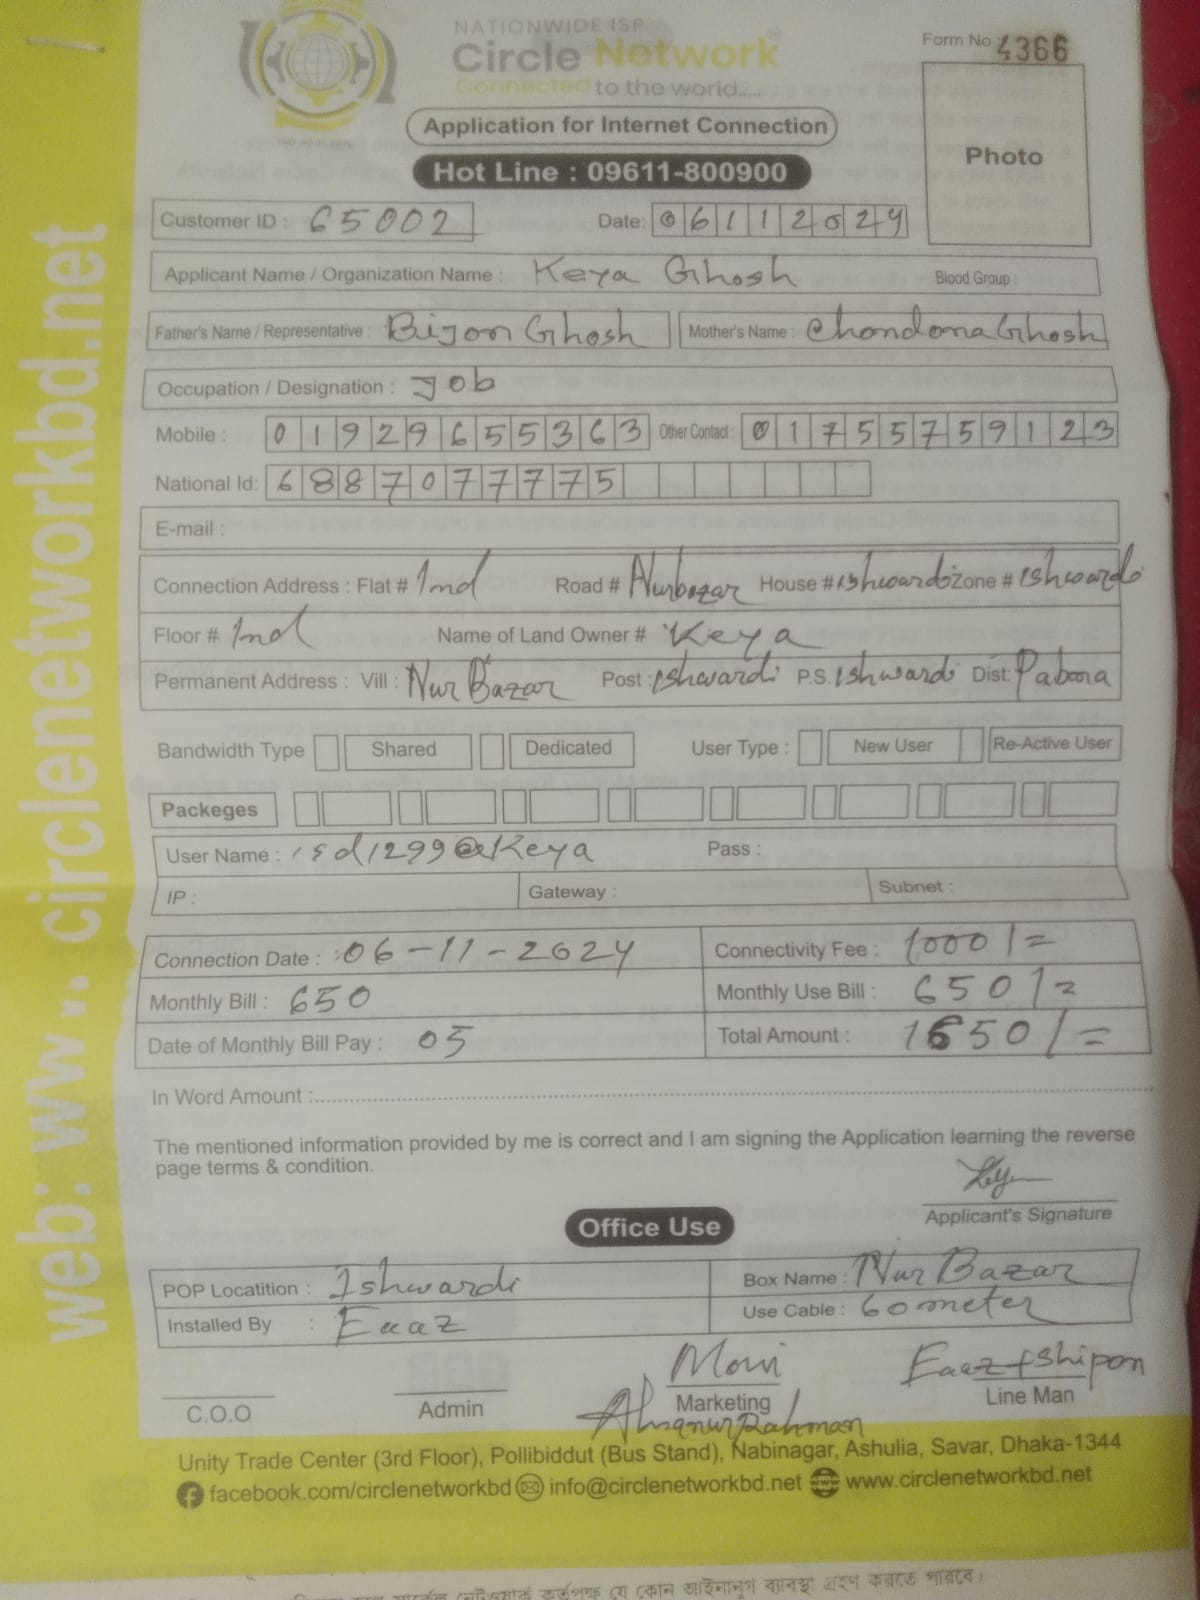 NATIONWIDE ISP
Circle Network
Connected to the world....
Form No : 4366
Photo
Application for Internet Connection
Hot Line : 09611-800900
Customer ID : 65002 Date: 06112024
Applicant Name / Organization Name : Keya Ghosh Blood Group :
Father's Name / Representative : Bijon Ghosh Mother's Name : Chondona Ghosh
Occupation / Designation : Job
Mobile : 01929655363 Other Contact : 01755759123
National Id: 6887077775
E-mail :
Connection Address : Flat # 1nd Road # Nurbazar House # ishwardi Zone # ishwardi
Floor # 1nd Name of Land Owner # Keya
Permanent Address : Vill : Nur Bazar Post : ishwardi P.S. ishwardi Dist: Pabona
Bandwidth Type Shared Dedicated User Type : New User Re-Active User
Packeges
User Name : isd1299@Keya Pass :
IP : Gateway : Subnet :
Connection Date : 06-11-2024 Connectivity Fee : 1000/=
Monthly Bill : 650 Monthly Use Bill : 650/=
Date of Monthly Bill Pay : 05 Total Amount : 1650/=
In Word Amount :
The mentioned information provided by me is correct and I am signing the Application learning the reverse
page terms & condition.
Keya
Applicant's Signature
Office Use
POP Locatition : Ishwardi Box Name : Nur Bazar
Installed By : Eaaz Use Cable : 60 meter
Moni Eaaz+Shipon
C.O.O Admin Marketing Line Man
Ahsanur Rahman
Unity Trade Center (3rd Floor), Pollibiddut (Bus Stand), Nabinagar, Ashulia, Savar, Dhaka-1344
facebook.com/circlenetworkbd info@circlenetworkbd.net www.circlenetworkbd.net
web: www. circlenetworkbd.net
কর্তৃপক্ষ যে কোন আইনানুগ ব্যাবস্থা গ্রহণ করতে পারবে।